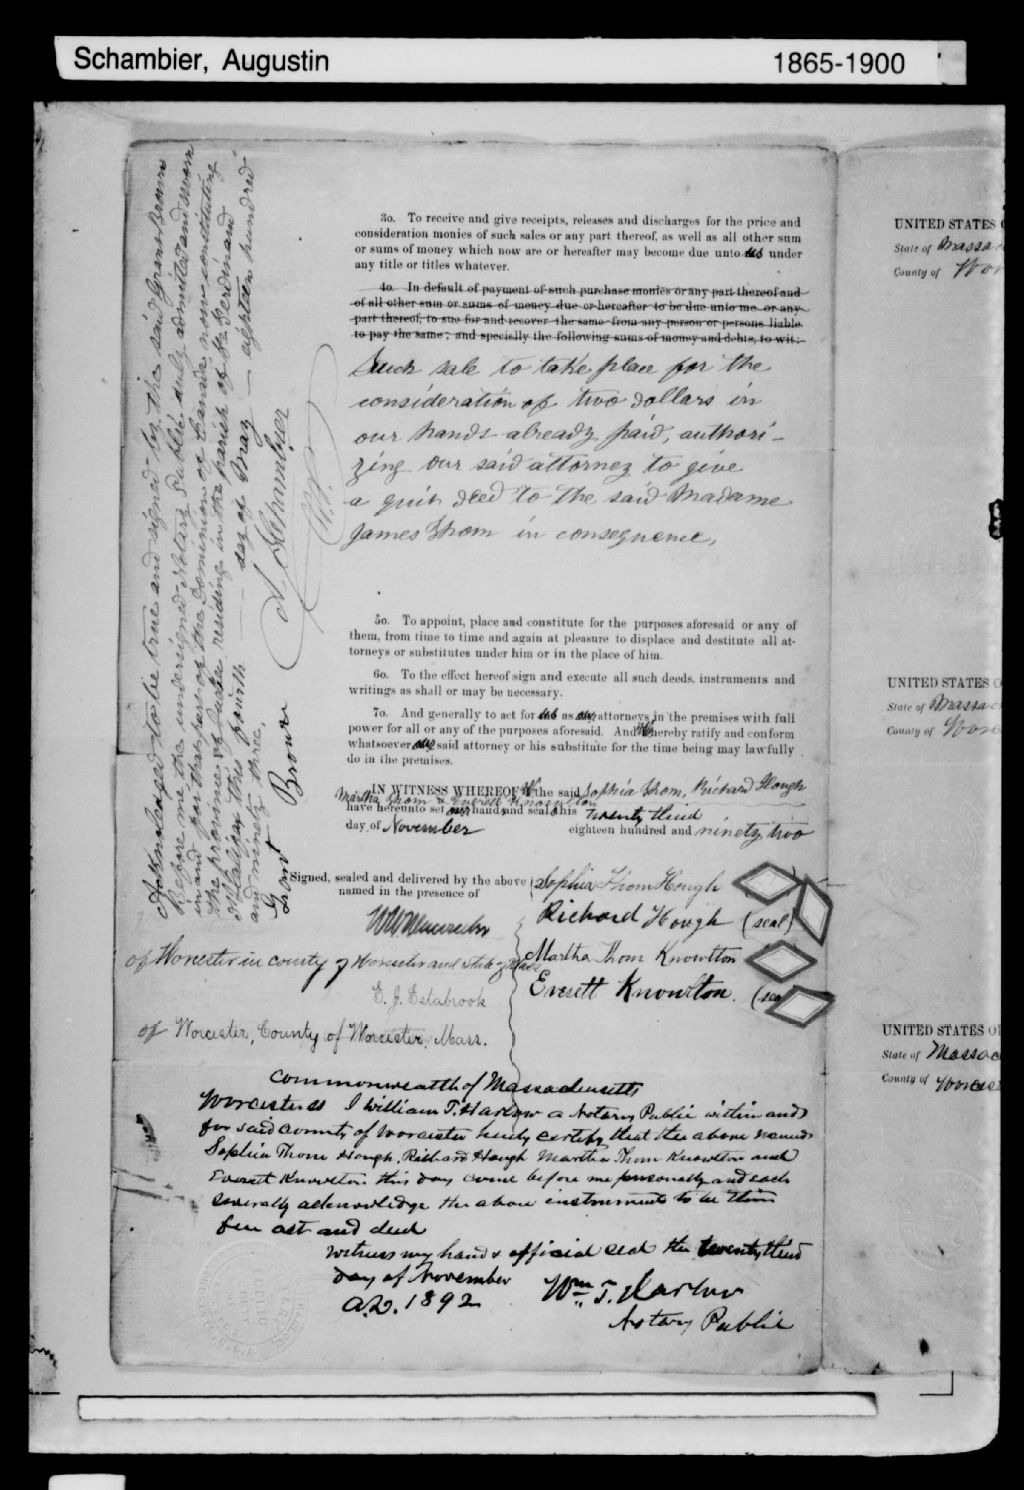 Schambier, Augustin
1865-1900
Acknowledged to be true and signed by the said Grant Brown
before me the undersigned Notary Public duly admitted and sworn
in and for that part of the Dominion of Canada now constituting
the province of Quebec residing in the parish of St. Ferdinand
d'Halifax this fourth day of May eighteen hundred
and ninety three,
Grant Brown A Schambier
N.P.
3o. To receive and give receipts, releases and discharges for the price and
consideration monies of such sales or any part thereof, as well as all other sum
or sums of money which now are or hereafter may become due unto us under
any title or titles whatever.
4o. In default of payment of such purchase monies or any part thereof and
of all other sum or sums of money due or hereafter to be due unto me or any
part thereof, to sue for and recover the same from any person or persons liable
to pay the same; and specially the following sums of money and debts, to wit:
Such sale to take place for the
consideration of two dollars in
our hands already paid, authori-
zing our said attorney to give
a quit deed to the said Madame
James Thom in consequence,
5o. To appoint, place and constitute for the purposes aforesaid or any of
them, from time to time and again at pleasure to displace and destitute all at-
torneys or substitutes under him or in the place of him.
6o. To the effect hereof sign and execute all such deeds, instruments and
writings as shall or may be necessary.
7o. And generally to act for us as our attorneys in the premises with full
power for all or any of the purposes aforesaid. And we hereby ratify and conform
whatsoever our said attorney or his substitute for the time being may lawfully
do in the premises.
IN WITNESS WHEREOF We the said Sophia Thom, Richard Hough
Martha Thom & Everett Knowlton
have hereunto set our hand and seal this twenty third
day of November eighteen hundred and ninety two
Signed, sealed and delivered by the above
named in the presence of
Sophia Thom Hough
Richard Hough (seal)
of Worcester in county of Worcester and State of Mass
Martha Thom Knowlton
E. J. Estabrook
Everett Knowlton. (seal)
of Worcester, County of Worcester, Mass.
Commonwealth of Massachusetts
Worcester ss I William T. Harlow a Notary Public within and
for said county of Worcester hereby certify that the above named
Sophia Thom Hough, Richard Hough Martha Thom Knowlton and
Everett Knowlton this day came before me personally and each
severally acknowledge the above instrument to be their
free act and deed
Witness my hand & official seal the twenty third
day of November
A.D. 1892
Wm T. Harlow
Notary Public
UNITED STATES O
State of Massac
County of Wor
UNITED STATES O
State of Massac
County of Worc
UNITED STATES O
State of Massac
County of Worces